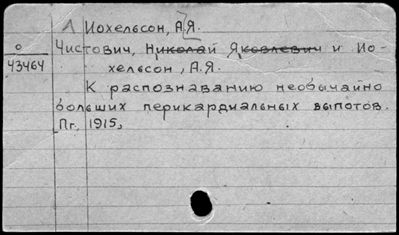 Л Иохельсон, А.Я.
о Чистович, Николай Яковлевич и Ио-
43464 хельсон, А.Я.
К распознаванию необычайно
больших перикардиальных выпотов.
Пг., 1915,